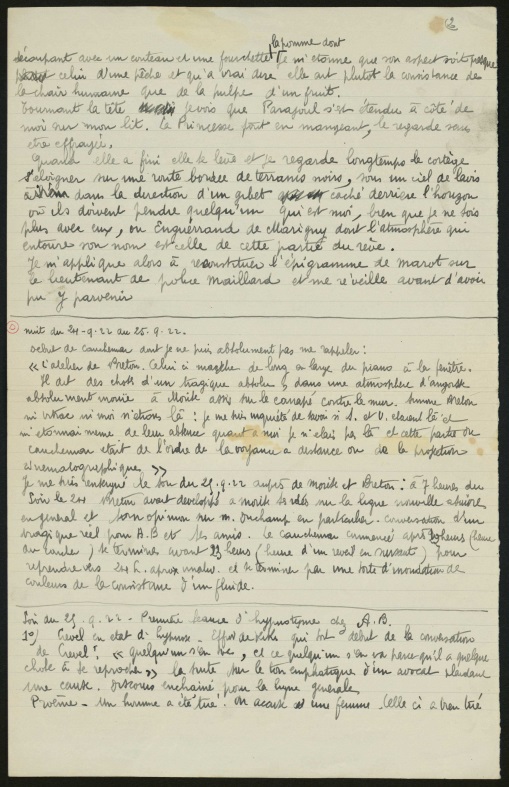 2
la pomme dont
découpant avec un couteau et une fourchette. Je m'étonne que son aspect soit presque
celui d'une pêche et qu'à vrai dire elle ait plutôt la consistance de
la chair humaine que de la pulpe d'un fruit.
Tournant la tête je vois que Paragoul s'est étendu à côté de
moi sur mon lit. La Princesse font en mangeant, le regarde sans
être effrayée.
Quand elle a fini elle se lève et je regarde longtemps le cortège
s'éloigner sur une route bordée de terrains noirs, sous un ciel de lavis
dans la direction d'un gibet caché derrière l'horizon
où ils doivent pendre quelqu'un qui est moi, bien que je ne sois
plus avec eux, ou Enguerrand de Marigny dont l'atmosphère qui
entoure son nom est celle de cette partie du rêve.
Je m'applique alors à reconstituer l'épigramme de Marot sur
le lieutenant de police Maillard et me réveille avant d'avoir
pu y parvenir
nuit du 24-9-22 au 25.9.22.
début de cauchemar dont je ne puis absolument pas me rappeler :
« L'atelier de Breton. Celui ci marche de long en large du piano à la fenêtre.
Il dit des choses d'un tragique absolu, dans une atmosphère d'angoisse
absolument inouïe à Morise assis sur le canapé contre le mur. Simone Breton
ni Vitrac ni moi n'étions là : je me suis inquiété de savoir si S. et V. étaient là et
m'étonnai même de leur absence quant à moi je n'étais pas là et cette partie du
cauchemar était de l'ordre de la voyance à distance ou de la projection
cinématographique. »
Je me suis renseigné le soir du 25.9.22 auprès de Morise et Breton : à 7 heures du
soir le 24 Breton avait développé à Morise ses idées sur la ligne nouvelle à suivre
en général et son opinion sur M. Duchamp en particulier. Conversation d'un
tragique réel pour A.B et ses amis. Le cauchemar commencé après heures (heure
du coucher) se termine avant 23 heures (heure d'un réveil en sursaut) pour
reprendre vers 24 h. et se terminer par une sorte d'inondation de
couleurs de la consistance d'un fluide.
Soir du 25.9.22 - Première séance d'hypnotisme chez A.B.
1°) Crevel en état d'hypnose. - qui sort début de la conversation
de Crevel : « quelqu'un s'en va, et ce quelqu'un s'en va parce qu'il a quelque
chose à se reprocher » la suite sur le ton emphatique d'un avocat plaidant
une cause. Discours enchaîné pour la ligne générale
Poème - Un homme a été tué. On accuse une femme. Celle ci a bien tué